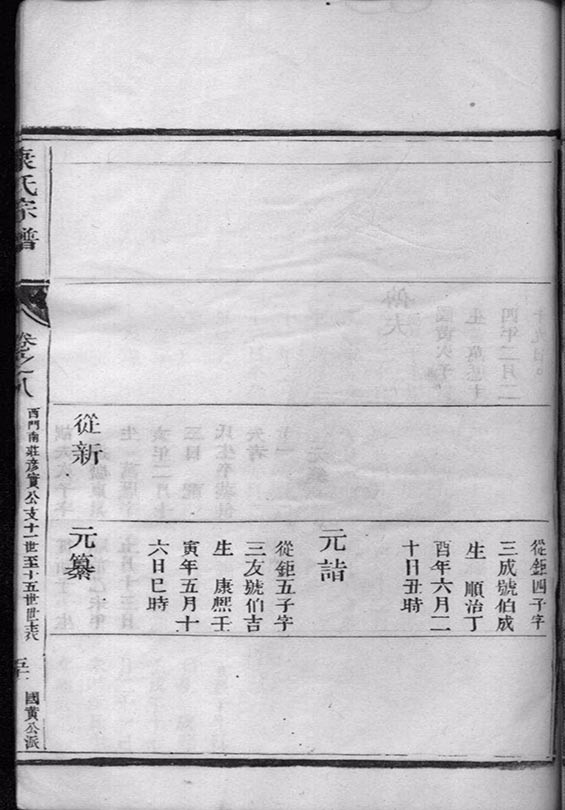 從鉅四子字
三成號伯成
生 順治丁
酉年六月二
十日丑時
元詣
從鉅五子字
三友號伯吉
生 康熙壬
寅年五月十
六日巳時
從新
元纂
康氏宗譜
卷之八
西門南莊彥實公支十一世至十五世世表
公派